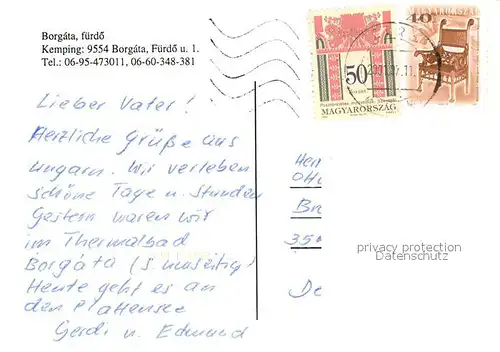 Borgáta, fürdő
Kemping: 9554 Borgáta, Fürdő u. 1.
Tel.: 06-95-473011, 06-60-348-381
50
MAGYARORSZÁG
40
MAGYARORSZÁG
Lieber Vater!
Herzliche Grüße aus
Ungarn. Wir verleben
schöne Tage u. Stunden
Gestern waren wir
im Thermalbad
Borgáta (s. umseitig)
Heute geht es an
den Plattensee
Gerdi u. Edmund
Her
Ott
Br
35
De
privacy protection
Datenschutz